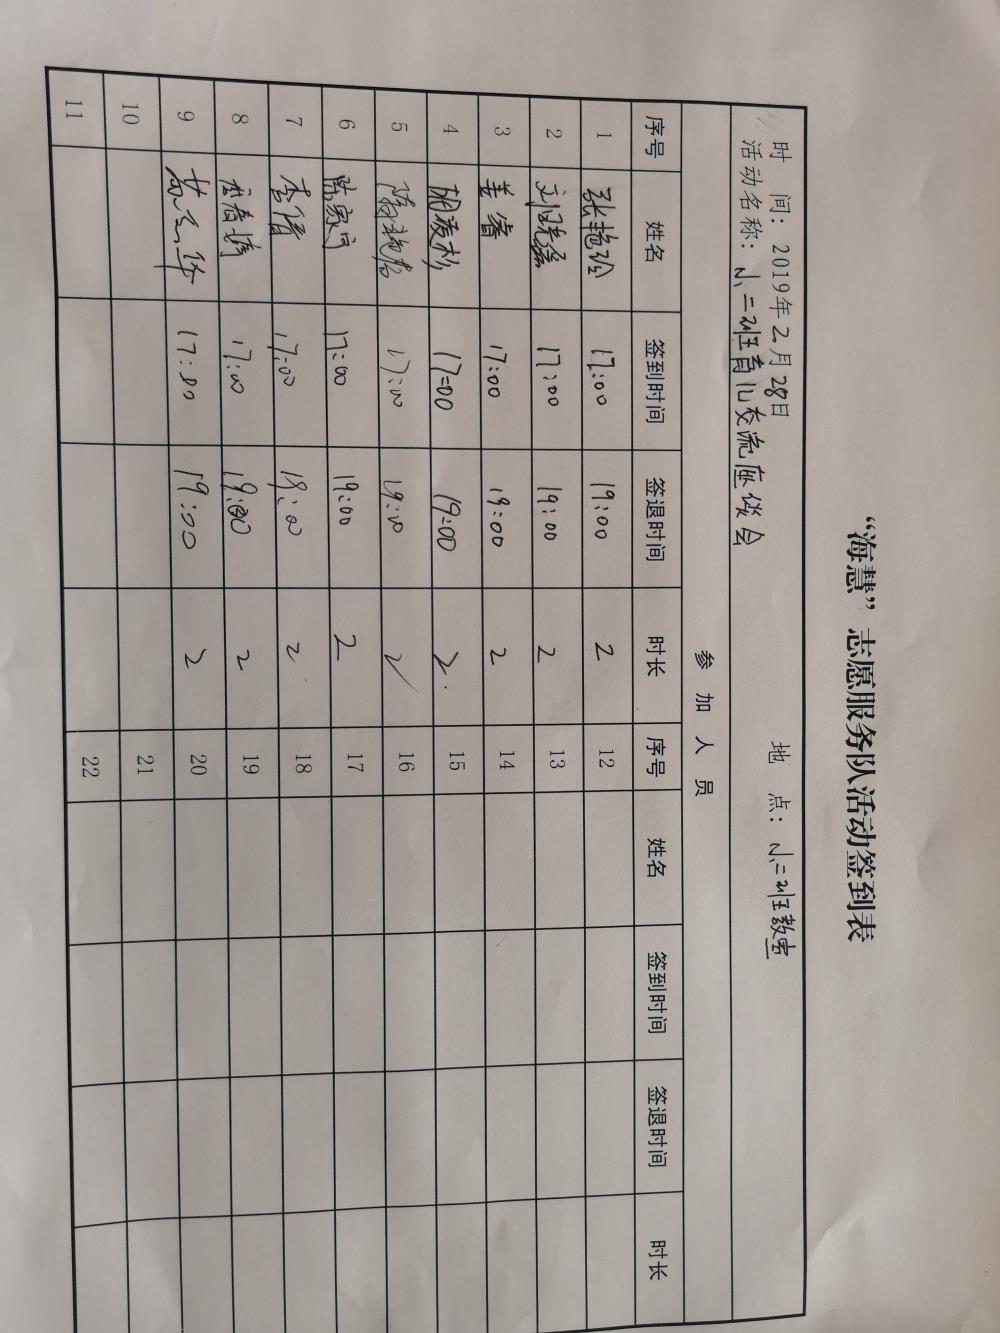 “海慧”志愿服务队活动签到表
时 间：2019年2月28日 地 点：小二班教室
活动名称：小二班育儿交流座谈会
参 加 人 员
序号 姓名 签到时间 签退时间 时长 序号 姓名 签到时间 签退时间 时长
1 张艳玲 17:00 19:00 2 12
2 17:00 19:00 2 13
3 姜睿 17:00 19:00 2 14
4 胡凌杉 17:00 19:00 2 15
5 17:00 19:00 2 16
6 陈家宁 17:00 19:00 2 17
7 李倩 17:00 19:00 2 18
8 17:00 19:00 2 19
9 17:00 19:00 2 20
10 21
11 22